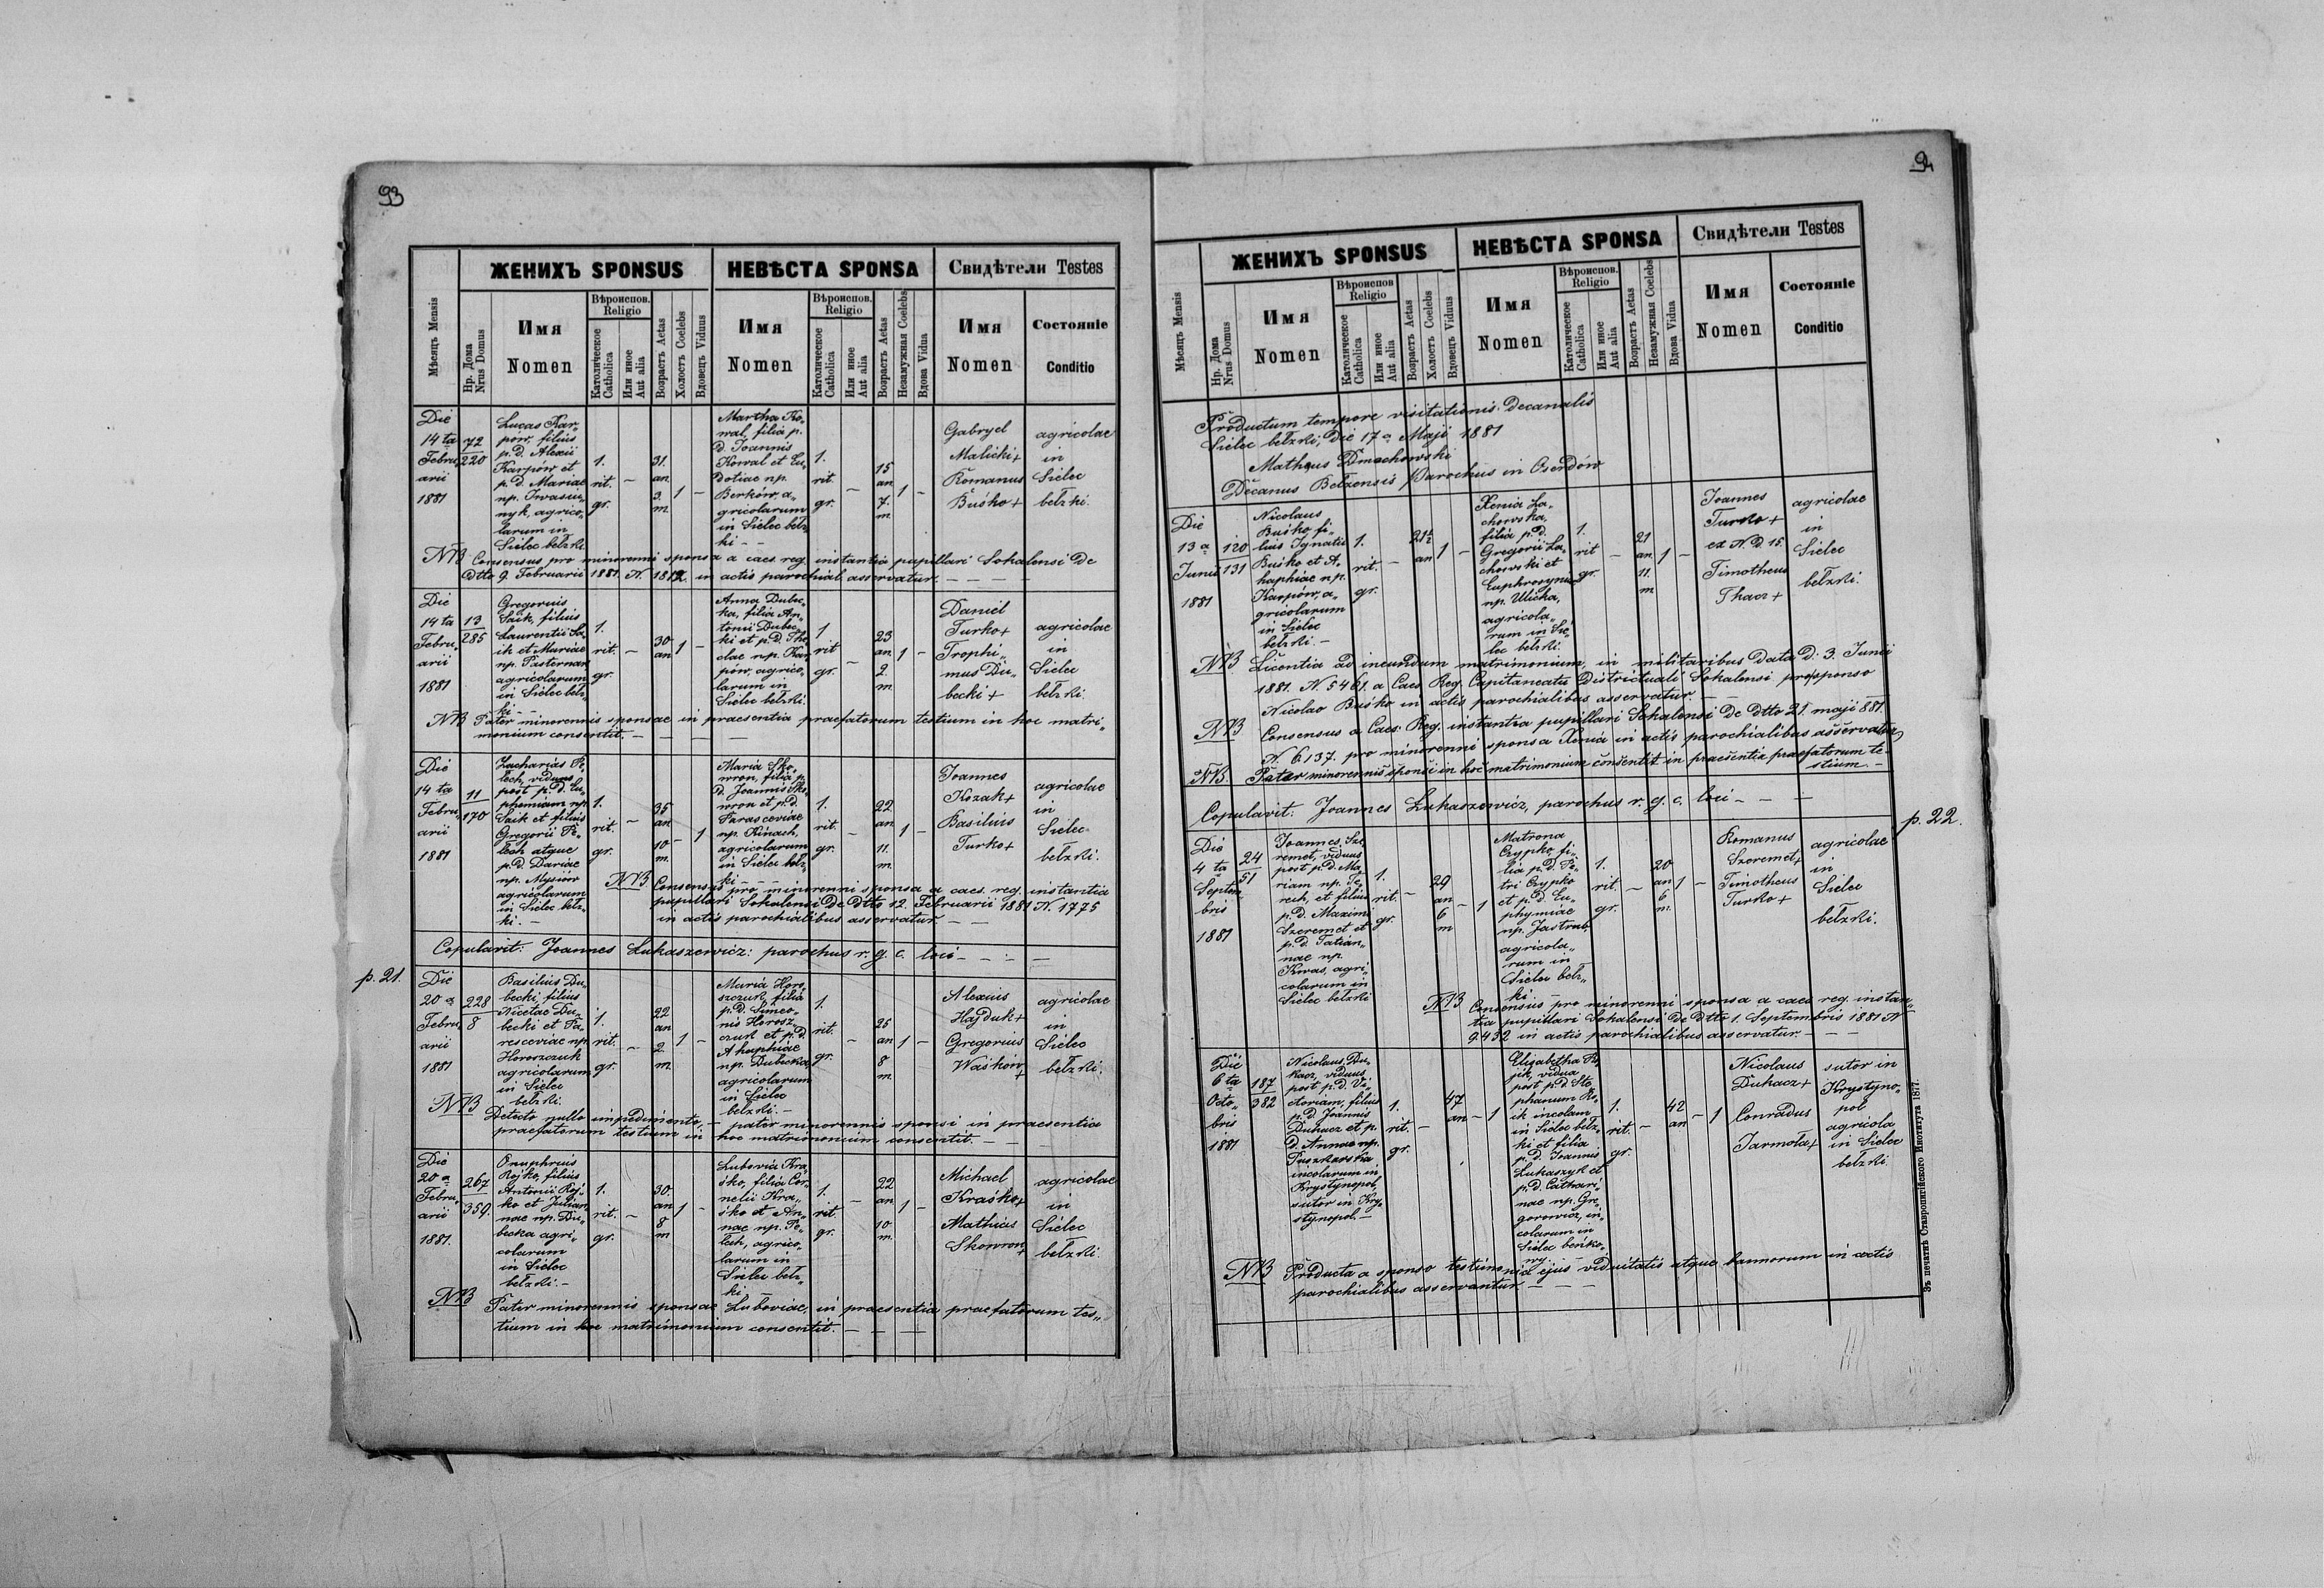 93
ЖЕНИХЪ SPONSUS
НЕВѢСТА SPONSA
Свидѣтели Testes
Мѣсяцъ Mensis
Нр. Дома
Nrus Domus
Имя
Nomen
Вѣроиспов.
Religio
Католическое
Catholica
Или иное
Aut alia
Возрастъ Aetas
Холостъ Coelebs
Вдовецъ Viduus
Имя
Nomen
Вѣроиспов.
Religio
Католическое
Catholica
Или иное
Aut alia
Возрастъ Aetas
Незамужная Coelebs
Вдова Vidua
Имя
Nomen
Состоянїе
Conditio
Die
14 ta
Febru„
arii
1881
72
220
Lucas Kar„
pow, filius
p. d. Alexii
Karpów et
p. d. Mariae
np. Iwasiu„
nyk, agrico„
larum in
Sielec bełzki
1.
rit.
gr.
–
31.
an
3.
m
1
–
Martha Ko„
wal, filia p.
d. Joannis
Kowal et Eu„
dotiae np.
Berków, a„
gricolarum
in Sielec bełz„
ki – –
1.
rit.
gr.
–
15
an
7.
m
1
–
Gabryel
Malicki +
Romanus
Buśko +
agricolae
in
Sielec
bełzki.
NB Consensus pro minorenni sponsa a caes. reg. instantia pupillari Sokalensi de
dtto 9. Februarii 1881. N. 1812. in actis parochial. asservatur. – – – –
Die
14 ta
Febru„
arii
1881
13
285
Gregorius
Saik, filius
Laurentii Sa„
ik et Mariae
np. Pasternak
agricolarum
in Sielec bełz„
ki – –
1.
rit.
gr.
–
30
an
1
–
Anna Dubec„
ka, filia An„
tonii Dubec„
ki et p. d. The„
clae np. Kar„
pów, agrico„
larum in
Sielec bełzki.
1
rit
gr.
–
23
an
2.
m
1
–
Daniel
Turko +
Trophi„
mus Du„
becki +
agricolae
in
Sielec
bełzki.
NB Pater minorennis sponsae in praesentia praefatorum testium in hoc matri„
monium consentit. – – – –
Die
14 ta
Febru„
arii
1881
11
170
Zacharias Pe„
lech, viduus
post p. d. Eu„
phemiam np.
Saik et filius
Gregorii Pe„
lech atque
p. d. Dariae
np. Mysiów
agricolarum
in Sielec bełz„
ki. –
1.
rit.
gr.
–
35
an
10
m.
–
1
Maria Sko„
wron, filia p.
d. Joannis Sko„
wron et p. d.
Parasceviae
np. Kinach,
agricolarum
in Sielec bełz„
ki – –
1.
rit.
gr.
–
22
an
11.
m.
1
–
Joannes
Kozak +
Basilius
Turko +
agricolae
in
Sielec
bełzki.
NB. Consensus pro minorenni sponsa a caes. reg. instantia
pupillari Sokalensi de dtto 12. Februarii 1881 N. 1775
in actis parochialibus asservatur – –
Copulavit: Joannes Łukaszewicz: parochus r. g. c. loci – – : –
p. 21.
Die
20 a
Febru„
arii
1881
228
8
Basilius Du„
becki, filius
Nicetae Du„
becki et Pa„
resceviae np.
Horoszczuk
agricolarum
in Sielec
bełzki.
1.
rit.
gr.
–
22
an
2.
m.
1
–
Maria Horo„
szczuk, filia
p. d. Simeo„
nis Horosz„
czuk et p. d.
Ahaphiae
np. Dubecka,
agricolarum
in Sielec
bełzki. –
1.
rit.
gr.
–
25
an
8
m
1
–
Alexius
Hajduk +
Gregorius
Waśków
+
agricolae
in
Sielec
bełzki.
NB Detecto nullo impedimento, – pater minorennis sponsi in praesentia
praefatorum testium in hoc matrimonium consentit. – – –
Die
20 a
Febru„
arii
1881.
267
359.
Onuphrius
Rojko, filius
Antonii Roj„
ko et Julian„
nae np. Du„
becka agri„
colarum
in Sielec
bełzki. –
1.
rit.
gr.
–
30.
an
8
m
1
–
Lubovia Kra„
śko, filia Cor„
nelii Kra„
śko et An„
nae np. Pe„
lech, agrico„
larum in
Sielec bełz„
ki. –
1.
rit.
gr.
–
22
an
10
m.
1
–
Michael
Kraśko +
Mathias
Skowron
+
agricolae
in
Sielec
bełzki.
NB Pater minorennis sponsae Luboviae, in praesentia praefatorum tes„
tium in hoc matrimonium consentit. – – –
94
ЖЕНИХЪ SPONSUS
НЕВѢСТА SPONSA
Свидѣтели Testes
Мѣсяцъ Mensis
Нр. Дома
Nrus Domus
Имя
Nomen
Вѣроиспов
Religio
Католическое
Catholica
Или иное
Aut alia
Возрастъ Aetas
Холостъ Coelebs
Вдовецъ Viduus
Имя
Nomen
Вѣроиспов.
Religio
Католическое
Catholica
Или иное
Aut alia
Возрастъ Aetas
Незамужная Coelebs
Вдова Vidua
Имя
Nomen
Состоянїе
Conditio
Productum tempore visitationis Decanalis
Sielec bełzki, die 17 a Maji 1881
Matheus Dmochowski
Decanus Bełzensis Parochus in Oserdów
Die
13 a
Junii
1881
120
131
Nicolaus
Buśko fi„
lius Ignatii
Buśko et A„
haphiae np.
Karpów, a„
gricolarum
in Sielec
bełzki. –
1.
rit.
gr.
–
an
1
–
Xenia La„
chowska,
filia p. d.
Gregorii La„
chowski et
Euphrosyniae
np. Ulicka,
agricola„
rum in Sie„
lec bełzki.
1.
rit
gr.
–
21
an
11.
m
1
–
Joannes
Turko +
ex N. D. 15.
Timotheus
Tkacz +
agricolae
in
Sielec
bełzki.
NB. Licentia ad ineundum matrimonium, in militaribus data d: 3. Junii
1881. N. 5461. a Caes. Reg. Capitaneatu Districtuali Sokalensi pro sponso
Nicolao Buśko in actis parochialibus asservatur. – –
NB Consensus a Caes. Reg. instantia pupillari Sokalensi de dtto 21. maji 881.
N. 6137. pro minorenni sponsa Xenia in actis parochialibus asservatur
NB. Pater minorennis sponsi in hoc matrimonium consentit in praesentia praefatorum te„
stium. –
Copulavit: Joannes Łukaszewicz, parochus r. g. c. loci – – –
p. 22.
Die
4 ta
Septem„
bris
1881
24
51
Joannes Sze„
remet, viduus
post p. d. Ma„
riam np. Te„
rech, et filius
p. d. Maximi
Szeremet et
p. d. Tatian„
nae np.
Kwas, agri„
colarum in
Sielec bełzki
1.
rit.
gr.
–
29
an
6
m
–
1
Matrona
Czypko, fi„
lia p. d. Pe„
tri Czypko
et p. d. Eu„
phymiae
np. Jastrub,
agricola„
rum in
Sielec bełz„
ki –
1.
rit.
gr.
–
20
an
6
m.
1
–
Romanus
Szeremet +
Timotheus
Turko +
agricolae
in
Sielec
bełzki.
NB Consensus pro minorenni sponsa a caes. reg. instan„
tia pupillari Sokalensi de dtto 1. Septembris 1881 N
9432 in actis parochialibus asservatur. – – –
Die
6 ta
Octo„
bris
1881
187
382
Nicolaus Du„
kacz, viduus
post p. d. Vi„
ctoriam, filius
p. d. Joannis
Dukacz et p.
d. Annae np.
Puszkarska
incolarum in
Krystynopol,
sutor in Kry„
stynopol. –
1.
rit.
gr.
–
47
an
–
1
Elisabetha Ro„
jik, vidua
post p. d. Ste„
phanum Ro„
ik incolam
in Sielec bełz„
ki et filia
p. d. Joannis
Łukaszyk et
p. d. Cathari„
nae np. Gre„
gorowicz, in„
colarum in
Sielec beńko„
wy. –
1.
rit.
gr.
–
42
an
–
1
Nicolaus
Dukacz +
Conradus
Jarmoła, +
sutor in
Krystyno„
pol
agricola
in Sielec
bełzki
NB Producta a sponso testimonia ejus viduitatis atque bannorum in actis
parochialibus asservantur. – – –
Зъ печатнѣ Ставропигїйского Института 1877.